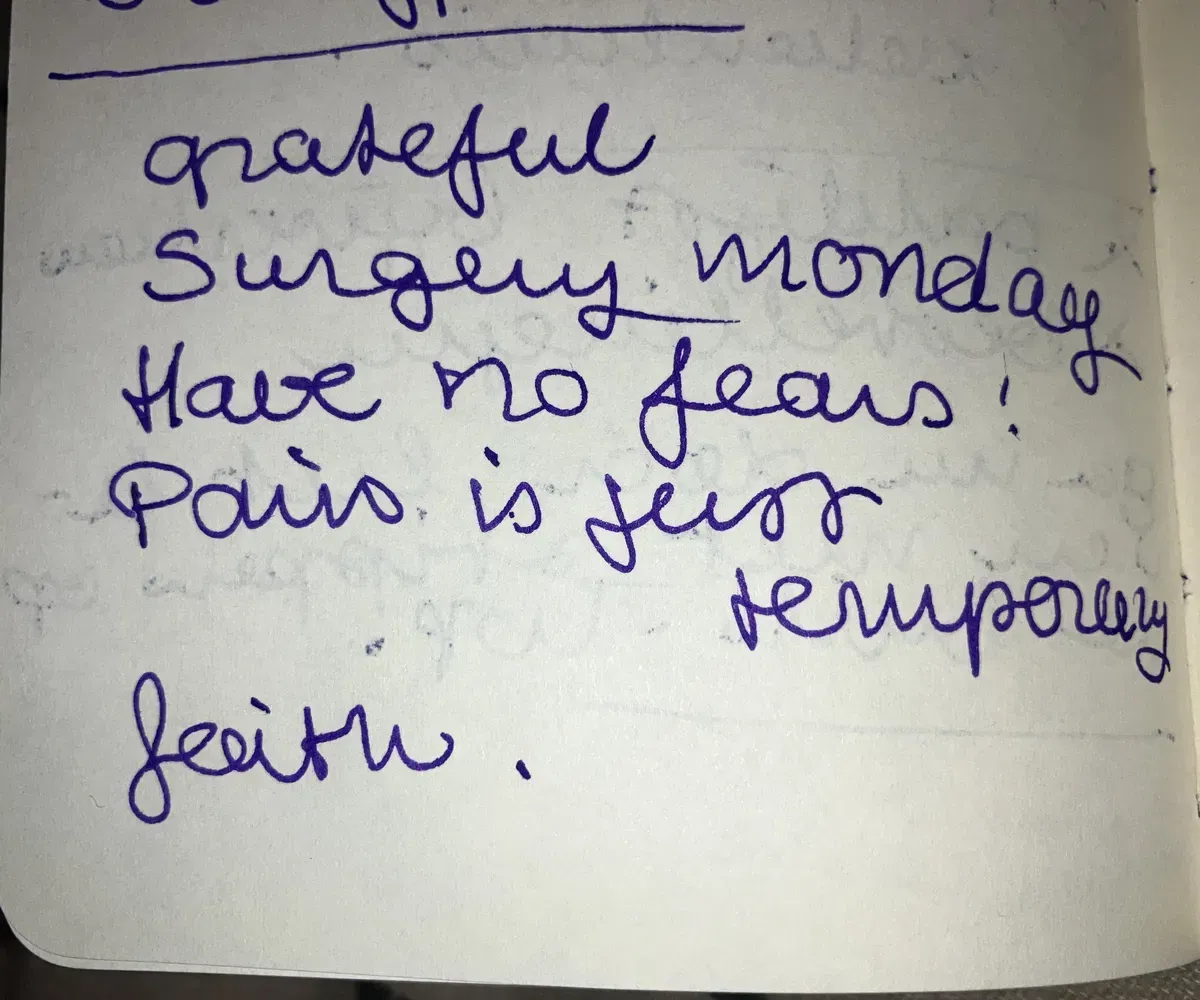 grateful
Surgery monday
Have no fears!
Pain is just
temporary
faith.